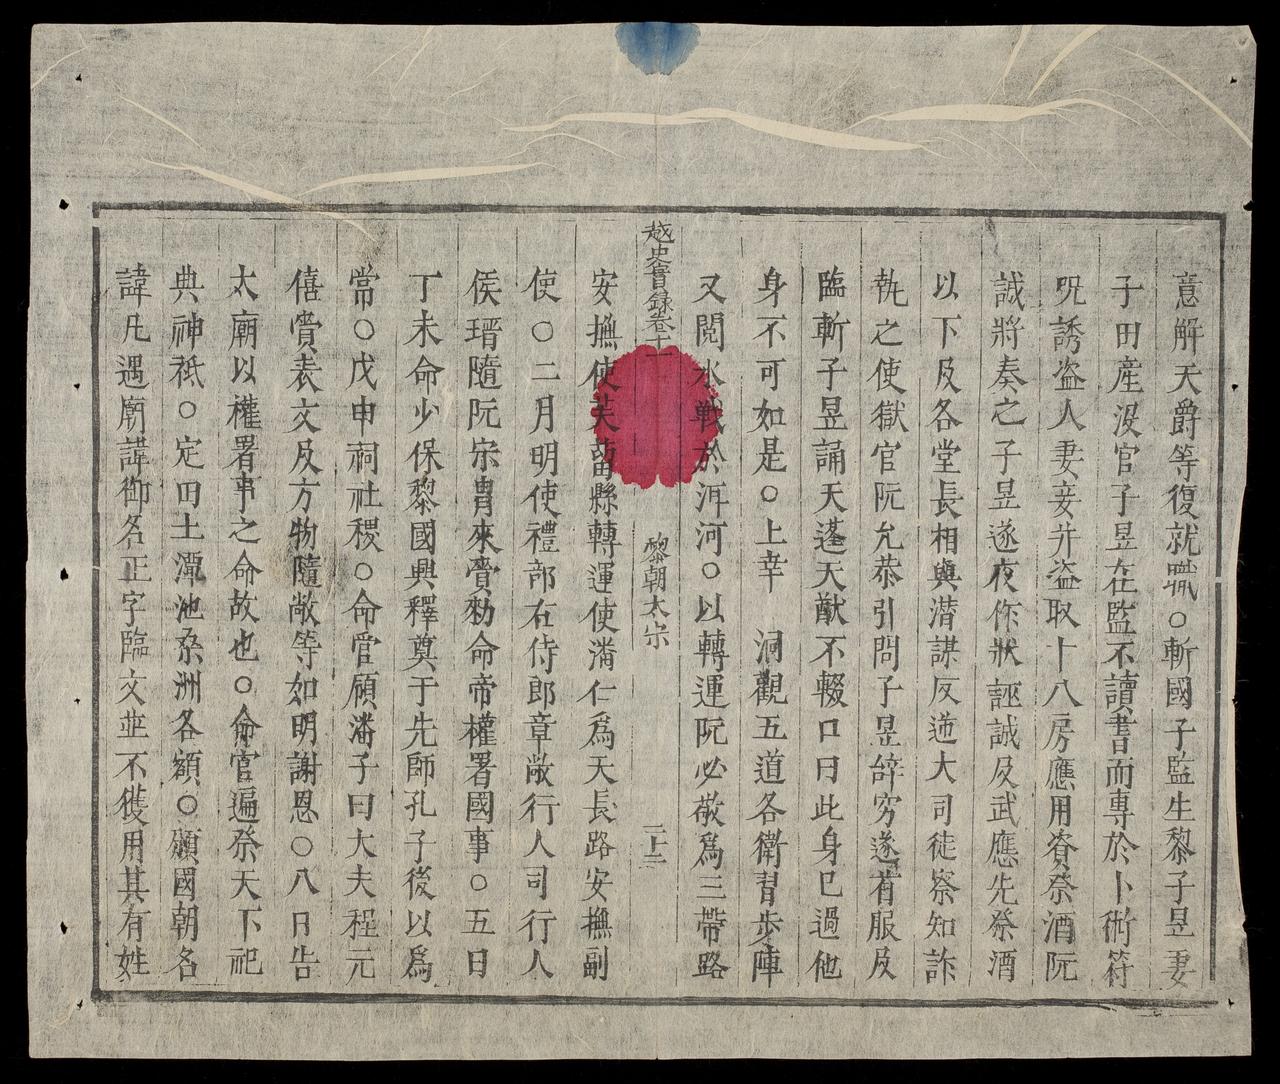 意解天爵等復就職○斬國子監生黎子昱妻
子田産没官子昱在監不讀書而專於卜術符
呪誘盗人妻妾并盗取十八房應用資祭酒阮
誠將奏之子昱遂夜作狀誣誠及武應先祭酒
以下及各堂長相與潜謀反逆大司徒察知詐
執之使獄官阮允恭引問子昱辞穷遂首服及
臨斬子昱誦天蓬天猷不輟口曰此身已過他
身不可如是○上幸 洞觀五道各衛習步陣
又閲水戰於洱河○以轉運阮必敬爲三帶路
越史實録卷十一 黎朝太宗 二十二
安撫使芙蒥縣轉運使潘仁爲天長路安撫副
使○二月明使禮部右侍郎章敞行人司行人
侯璡隨阮宗胄來賫勑命帝權署國事○五日
丁未命少保黎國興釋奠于先師孔子後以爲
常○戊申祠社稷○命官頋潘子曰大夫程元
僖賫表文及方物隨敞等如明謝恩○八日告
太廟以權署事之命故也○命官遍祭天下祀
典神祇○定田土潭池桑洲各額○頒國朝名
諱凡遇廟諱御名正字臨文並不獲用其有姓